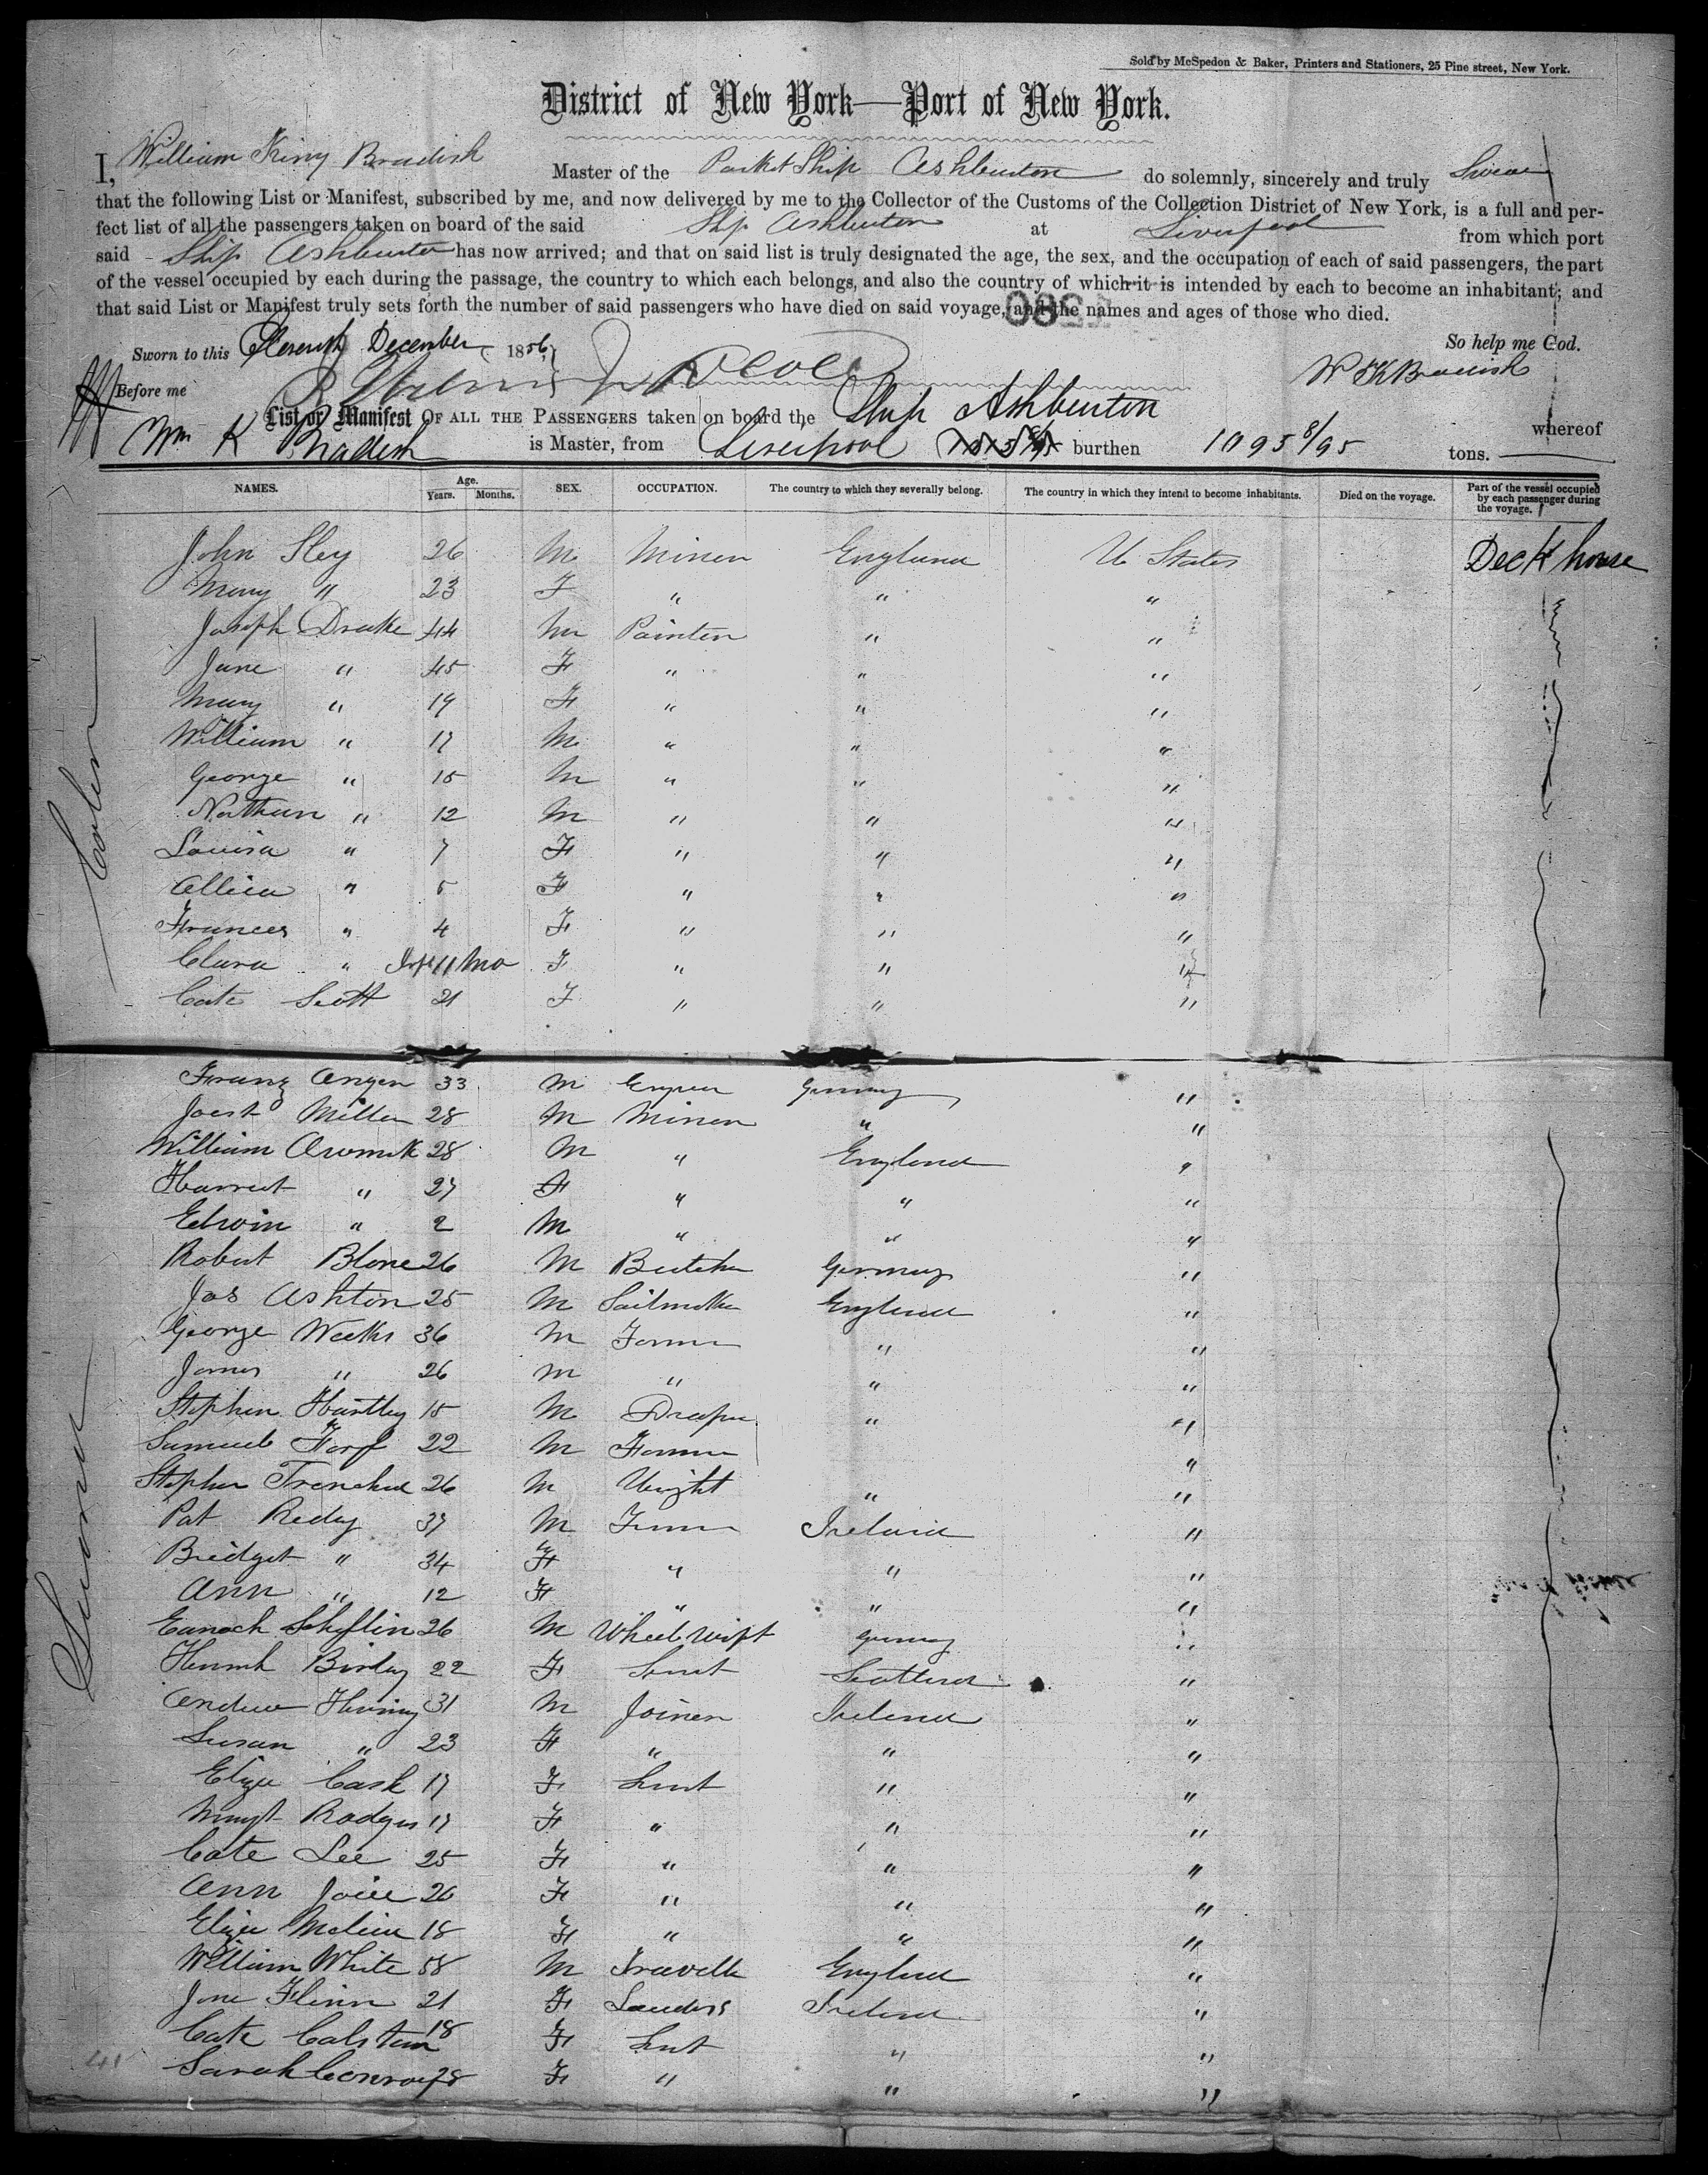 Sold by McSpedon & Baker, Printers and Stationers, 25 Pine street, New York.
District of New York—Port of New York.
I, William King Bradish Master of the Packet Ship Ashburton do solemnly, sincerely and truly Swear
that the following List or Manifest, subscribed by me, and now delivered by me to the Collector of the Customs of the Collection District of New York, is a full and per-
fect list of all the passengers taken on board of the said Ship Ashburton at Liverpool from which port
said Ship Ashburton has now arrived; and that on said list is truly designated the age, the sex, and the occupation of each of said passengers, the part
of the vessel occupied by each during the passage, the country to which each belongs, and also the country of which it is intended by each to become an inhabitant; and
that said List or Manifest truly sets forth the number of said passengers who have died on said voyage, and the names and ages of those who died.
Sworn to this December 1856 So help me God.
Before me W K Bradish
List or Manifest OF ALL THE PASSENGERS taken on board the Ship Ashburton whereof
Wm K Bradish is Master, from Liverpool burthen 1095 8/95 tons.
NAMES. Age. Years. Months. SEX. OCCUPATION. The country to which they severally belong. The country in which they intend to become inhabitants. Died on the voyage. Part of the vessel occupied by each passenger during the voyage.
John Sley 26 M Miner England U States Deck house
Mary " 23 F " " "
Joseph Drake 44 M Painter " "
Jane " 45 F " " "
Mary " 19 F " " "
William " 17 M " " "
George " 15 M " " "
Nathan " 12 M " " "
Louisa " 7 F " " "
Allica " 5 F " " "
Frances " 4 F " " "
Clara " Inf 11 Mo F " " "
Cate Scott 21 F " " "
Franz 33 M Germany "
Joest Miller 28 M Miner " "
William 28 M " England "
Harriet " 27 F " " "
Edwin " 2 M " " "
Robert Blone 26 M Butcher Germany "
Jas Ashton 25 M Sailmaker England "
George Weeks 36 M Farmer " "
James " 26 M " " "
Stephen Huntley 15 M Draper " "
Samuel 22 M Farmer "
Stephen Trenchard 26 M Wright " "
Pat Redy 37 M Farmer Ireland "
Bridget " 34 F " " "
Ann " 12 F " " "
26 M Wheelwright Germany "
Hannah 22 F Servt Scotland "
Andrew 31 M Joiner Ireland "
Susan " 23 F " " "
Eliza Cash 17 F Servt " "
Margt Rodgers 17 F " " "
Cate Lee 25 F " " "
Ann Joice 26 F " " "
Eliza 18 F " " "
William White 58 M Traveller England "
Jane Flinn 21 F Ireland "
Cate 18 F Servt " "
Sarah Conroy 28 F " " "
41